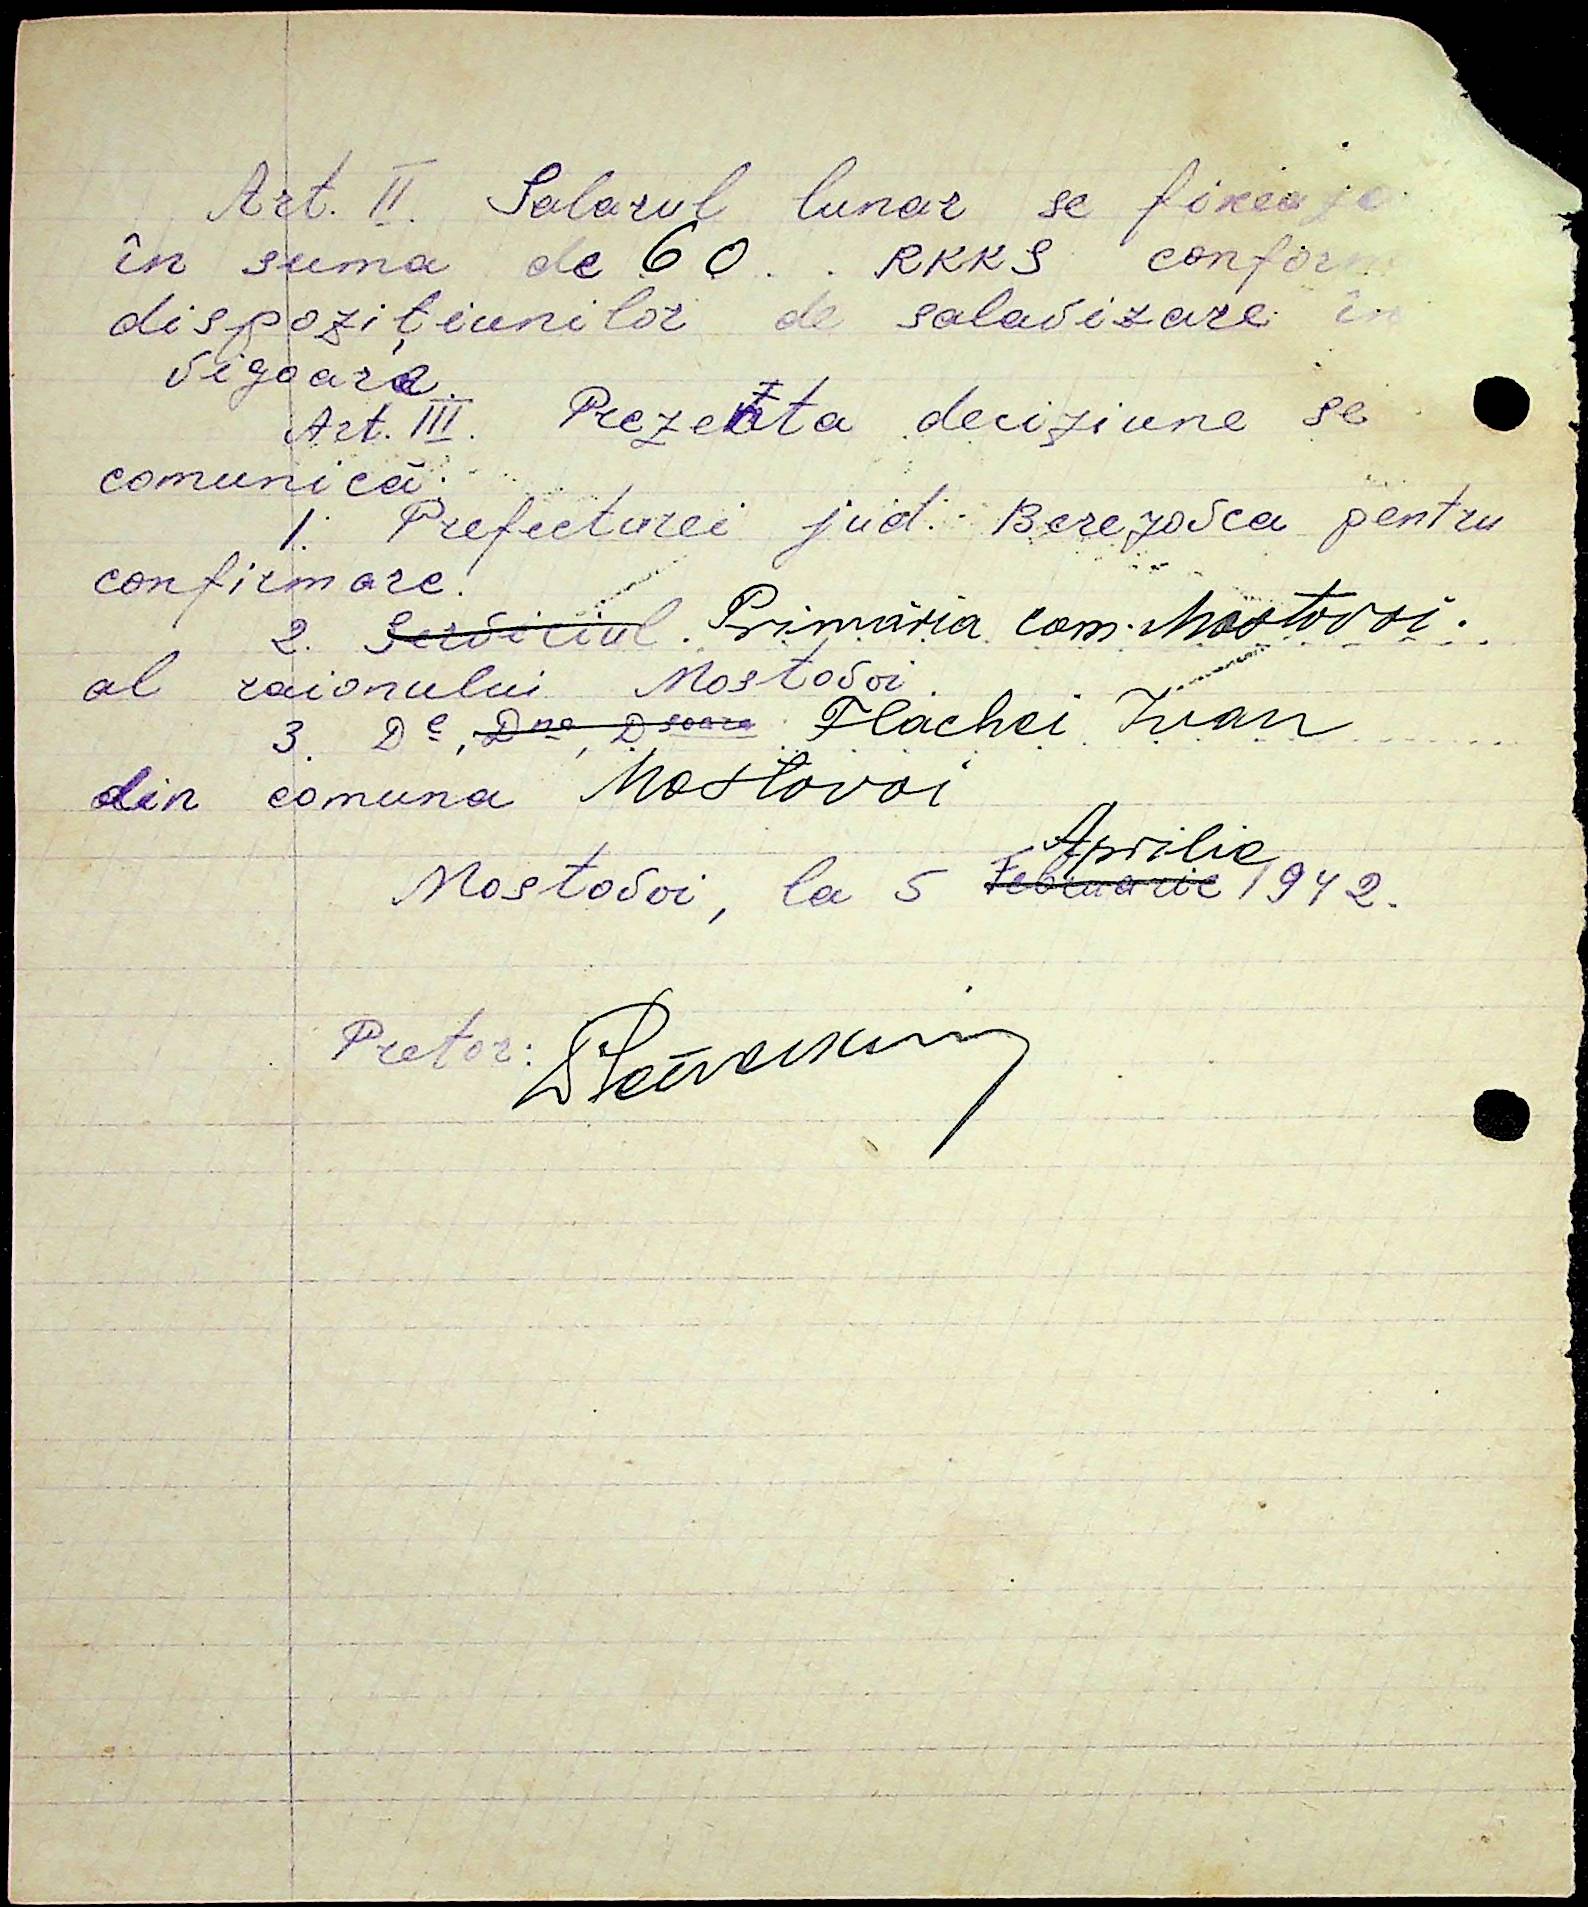 Art. II. Salarul lunar se fixeaje
în suma de 60 . . RKKS conform
dispozițiunilor de salavizare în
vigoare.
Art. III. Prezenta deciziune se
comunică:
1. Prefecturei jud. Berezovca pentru
confirmare.
2. Serviciul . Primăria com. Mostovoi.
al raionului Mostovoi.
3. D^l, D^na, D^soara Flachei Ivan
din comuna Mostovoi
Aprilie
Mostovoi, la 5 Februarie 1942.
Pretor: